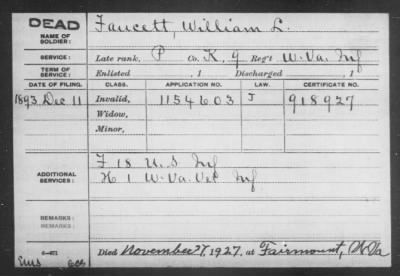 DEAD
NAME OF SOLDIER:
Faucett, William L.
SERVICE:
Late rank, P Co. K, 9 Reg't W. Va. Inf
TERM OF SERVICE:
Enlisted , 1 Discharged , 1
DATE OF FILING. CLASS. APPLICATION NO. LAW. CERTIFICATE NO.
1893 Dec 11 Invalid, 1154603 J 918927
Widow,
Minor,
ADDITIONAL SERVICES:
F 18 U.S Inf
H 1 W. Va. Vet Inf
REMARKS:
REMARKS:
Died November 27, 1927, at Fairmount, W Va